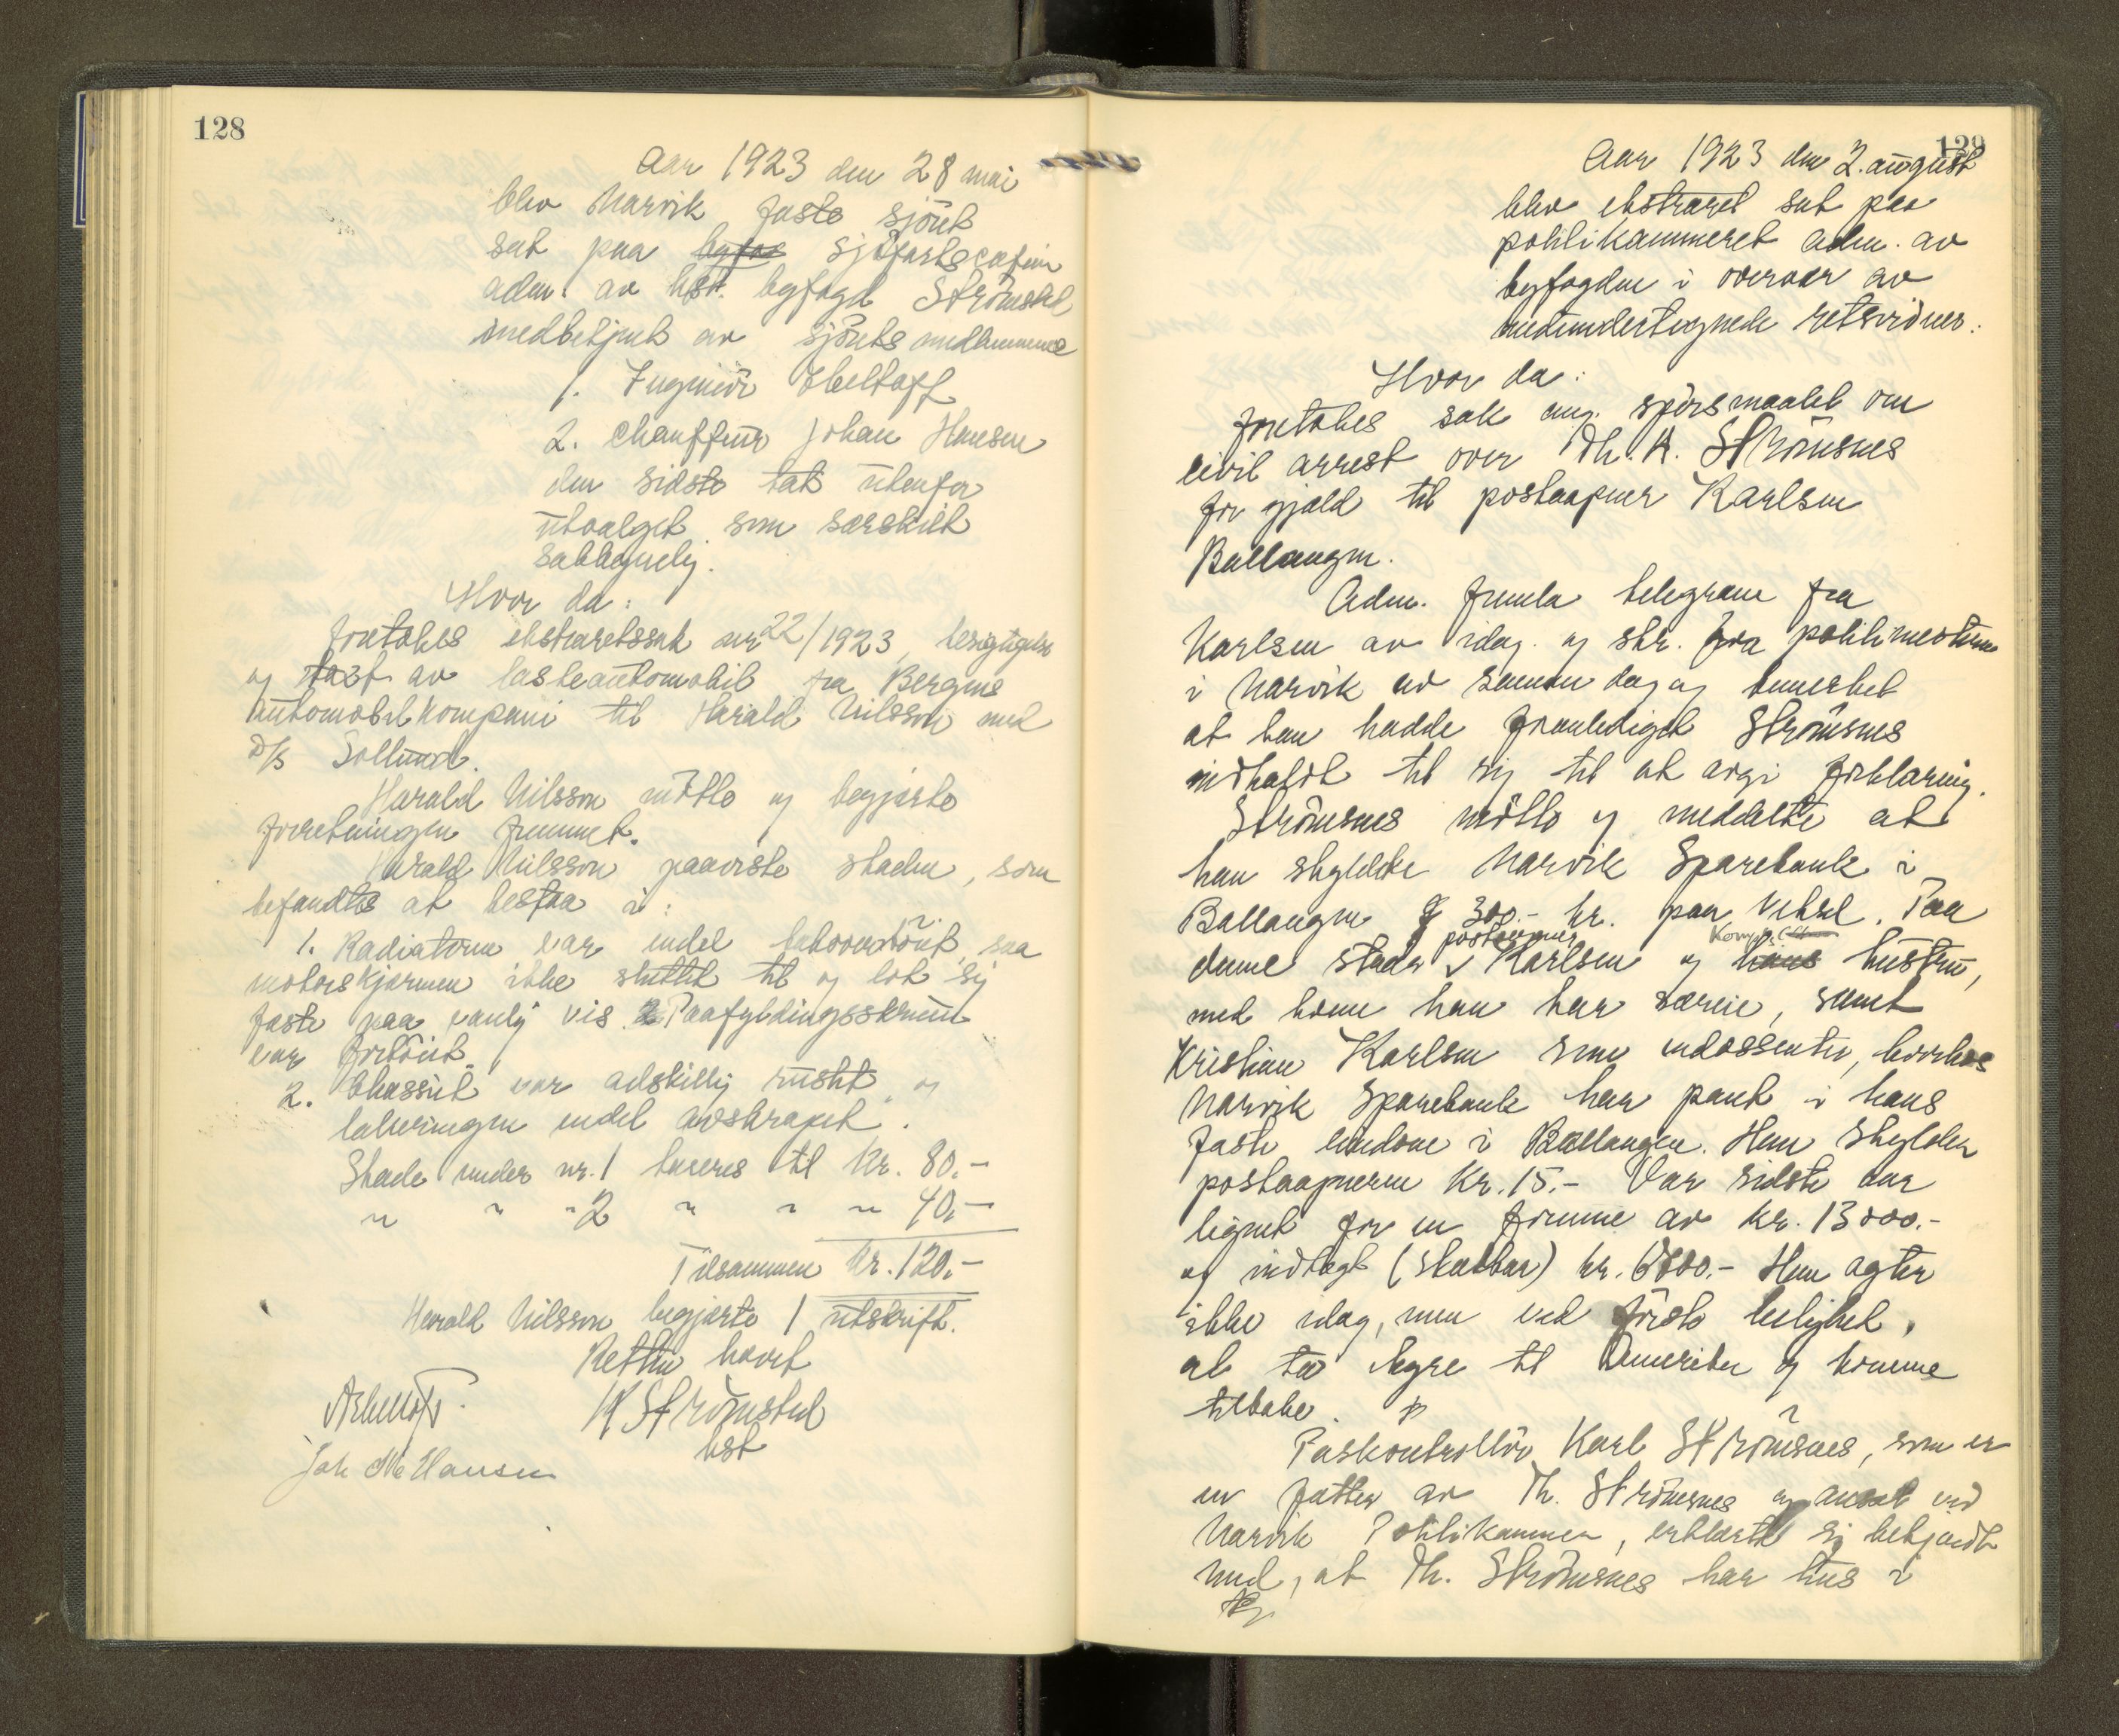 128
Aar 1923 den 28 mai
blev Narvik faste sjöret
sat paa byfog sjöfartscafeen
adm. av kst. byfogd Strömstad
medbetjent av sjörets medlemmene
1. Ingeniör Ebeltoft
2. Chauffeur Johan Hansen
den sidste tat utenfor
utvalget som særskilt
sakkyndig.
Hvor da:
foretokes ekstraretssak nr 22/1923, besigtigelse
og takst av lasteautomobil fra Bergens
Automobilkompani til Harald Nilsson med
D/S Sollund.
Harald Nilsson mötte og begjærte
forretningen fremmet.
Harald Nilsson paaviste skaden, som
befandtes at bestaa i:
1. Radiatoren var endel bakoverböiet, saa
motorskjermen ikke sluttet til og lot sig
faste paa vanlig vis. Paafyldingsskruen
var forböiet.
2. Chassiet var adskillig rustet og
lakeringen endel avskrapet.
Skade under nr. 1 takseres til kr. 80.-
" " " 2 " " " 40,-
Tilsammen kr. 120.-
Harald Nilsson begjærte 1 utskrift.
Retten hævet
AEbeltoft. K Strömstad
kst
Joh M Hansen
129
Aar 1923 den 2. august
blev ekstraret sat paa
politikammeret adm. av
byfogden i overvær av
medundertegnede retsvidner.
Hvor da:
foretokes sak ang. spörsmaalet om
civil arrest over Th. K. Strömsnes
for gjæld til postaapner Karlsen
Ballangen.
Adm. fremla telegram fra
Karlsen av idag og skr. fra politimesteren
i Narvik av samme dag og bemerket
at han hadde foranlediget Strömsnes
indkaldt til sig til at avgi forklaring.
Strömsnes mötte og meddelte at
han skyldte Narvik Sparebank i
Ballangen 300.- kr. paa veksel. Paa
denne staar postaapner Karlsen og hans hustru,
med hvem han har særeie, samt
Kristian Karlsen som endossenter, hvorhos
Narvik Sparebank har pant i hans
faste eiendom i Ballangen. Han skylder
postaapneren Kr. 15.- Var sidste aar
lignet for en formue av kr. 13000.-
og indtægt (skatbar) kr. 6000.- Han agter
ikke idag, men ved förste leilighet,
at ta hyre til Amerika og komme
tilbake.
Paskontrollör Karl Strömsnes, som er
en fætter av Th. Strömsnes og ansat ved
Narvik Politikammer, erklærte sig bekjendt
med, at Th. Strömsnes har hus i